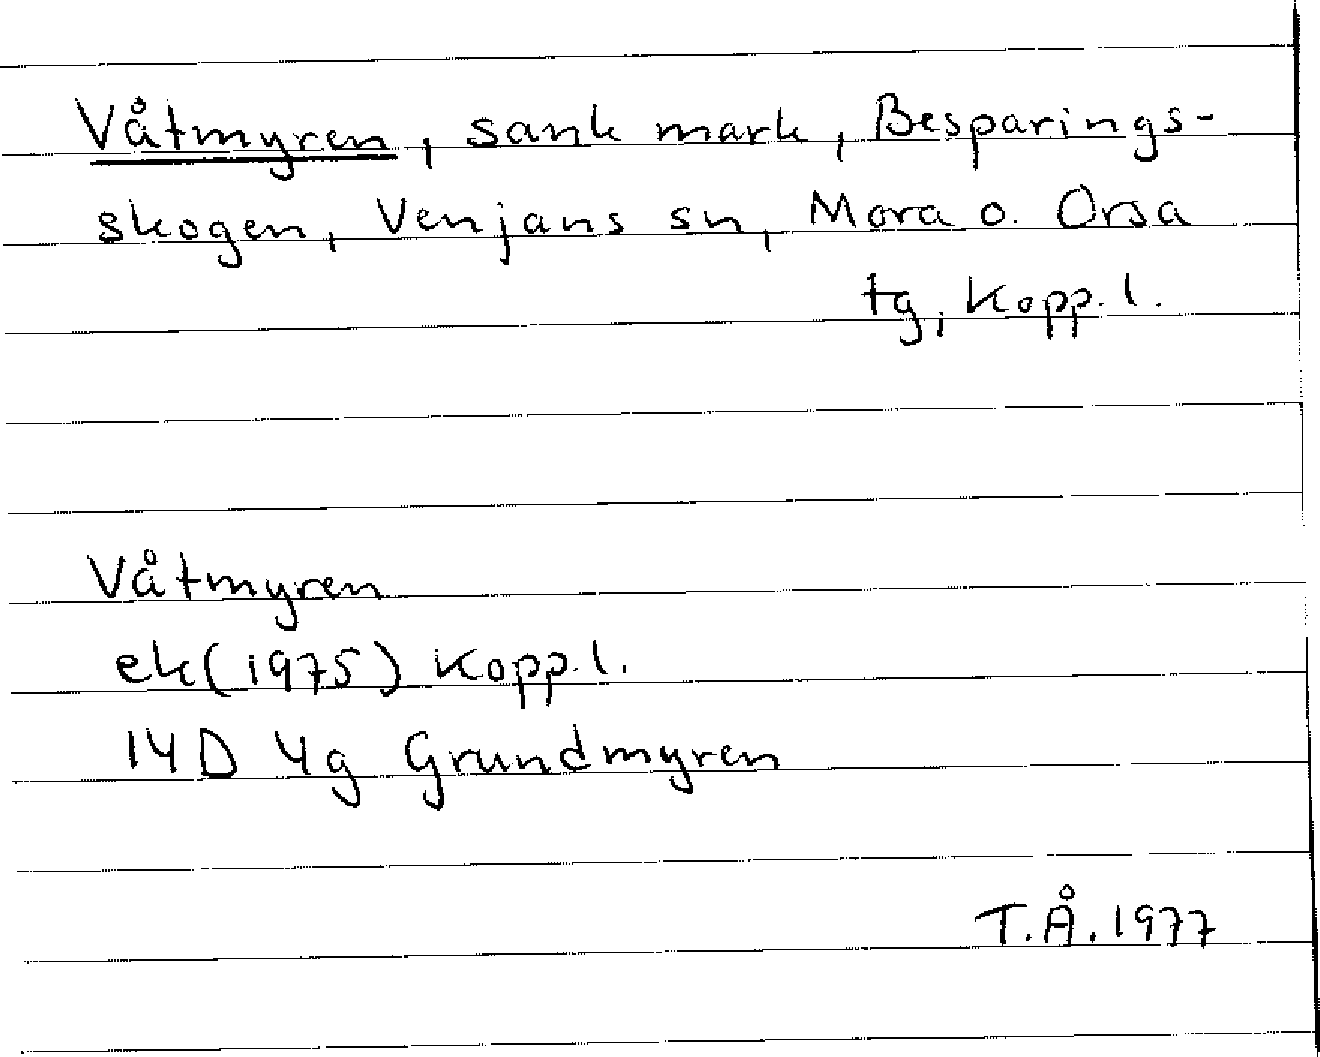 Våtmyren, sank mark, Besparings-
skogen, Venjans sn, Mora o. Orsa
tg, Kopp. l.
Våtmyren
ek (1975) Kopp. l.
14D 4g Grundmyren
T.Å. 1977